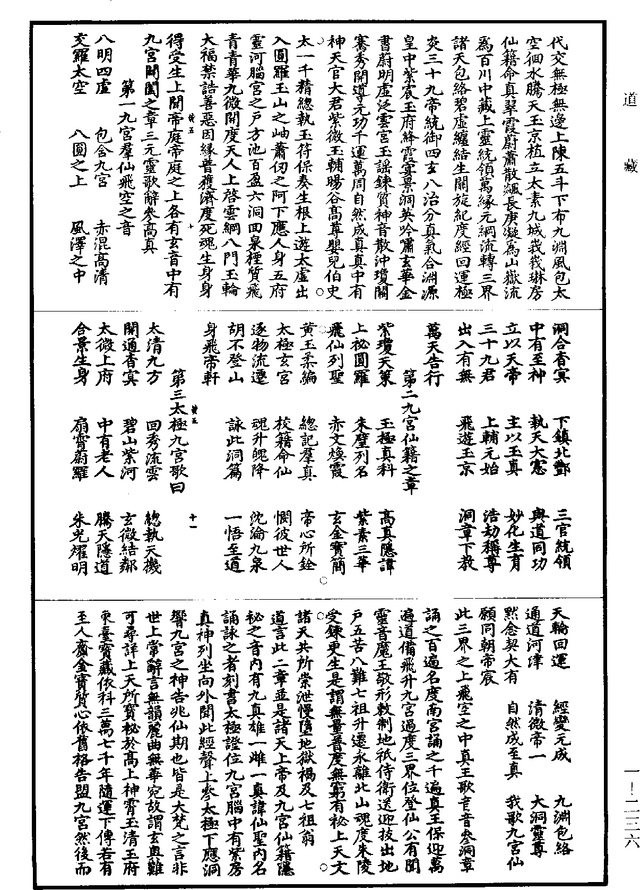 道藏
代交無極無邊上陳五斗下布九淵風包太
空徊水騰天玉京植立太素九城峩峩琳房
仙籍命真翠霞蔚蕭散飆長庚凝為山嶽流
為百川中藏上靈統領萬緣元綱流轉三界
諸天包絡碧虛纏結生關旋紀度經回運極
炎三十九帝統御四玄八洽分真氣合淵源
皇中紫宸玉府絳霞寥景洞英吟肅玄華金
書蔚明虛泛雲宮玉謠鍊質神音散沖瓊闕
騫秀開導元功千運萬周自然成真真中有
神天官大君紫微玉輔暘谷高尊嬰兒伯史
太一千精總執玉符保奏生根上遊太虛出
入圓羅玉山之岫蕭仞之阿下應人身五府
靈河腦宮之戶方池百盈六洞四泉種質飛
青青華九微開度天人上啓雲網八門玉輪
大福禁語善惡因緣普獲濟度死魂生身身
得受生上開帝庭帝庭之上各有玄音中有
九宮開闔之章三元靈歌辭參高真
第一九宮羣仙飛空之音
八明四虛　包含九宮　赤混高清
交羅太空　八圓之上　風澤之中
洞合香冥　下鎮北酆　三官統領
中有至神　執天大憲　與道同功
立以天帝　主以玉真　妙化生育
三十九君　上輔元始　浩劫稱尊
出入有無　飛遊玉京　洞章下教
萬天告行
第二九宮仙籍之章
紫瓊天篆　玉極真科　高真隱諱
上祕圓羅　朱壁列名　紫素三華
飛仙列聖　赤文煥霞　玄金寶簡
黃玉柔編　總記羣真　帝心所銓
太極玄宮　校籍命仙　憫彼世人
逐物流遷　魂升魄降　沈淪九泉
胡不登山　詠此洞篇　一悟至道
身飛帝軒
第三太極九宮歌曰
太清九方　回秀流雲　總執天機
開通香冥　碧山紫河　玄微結鄰
太微上府　中有老人　騰天隱道
合景生身　扇霄蔚羅　朱光耀明
天輪回運　經變元成　九淵包絡
通道河津　清微帝一　大洞靈尊
默念契大有　自然成至真　我歌九宮仙
願同朝帝宸
此三界之上飛空之中真王歌音音參洞章
誦之百遍名度南宮誦之千遍真王保迎萬
遍道備飛升九宮過度三界位登仙公有聞
靈音魔王敬形敕制地祇侍衛送迎拔出地
戶五苦八難七祖升遷永離北山魂度朱陵
受鍊更生是謂無量普度無窮有祕上天文
諸天共所崇泄慢墮地獄禍及七祖翁
道言此二章並是諸天上帝及九宮仙籍隱
祕之音內有九真雄一雌一真諱仙聖內名
誦詠之者刻書太極證位九宮腦中有紫房
真神列坐向外聞此經聲上參太極下應洞
響九宮之神告兆仙期也皆是大梵之言非
世上常辭言無韻麗曲無華宛故謂玄奧難
可尋詳上天所寶祕於高上神霄玉清王府
東臺寶藏依科三萬七千年隨運下傳若有
至人齎金寶質心依舊格告盟九宮然後而
一—二三六